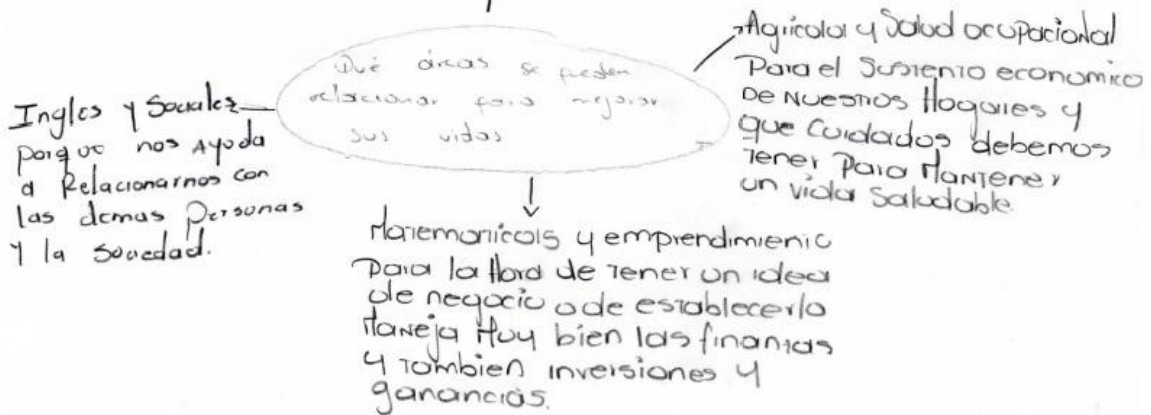 Qué áreas se pueden
relacionar para mejorar
sus vidas
Ingles y Sociales
porque nos Ayuda
a Relacionarnos con
las demas Personas
Y la Sociedad.
Agricola y Salud ocupacional
Para el Sustento economico
De Nuestros Hogares y
que Cuidados debemos
Tener Para Mantener
un vida Saludable
Matematicas y emprendimiento
Para la Hora de Tener un idea
de negocio o de establecerlo
Maneja Muy bien las finanzas
y Tambien inversiones y
ganancias.